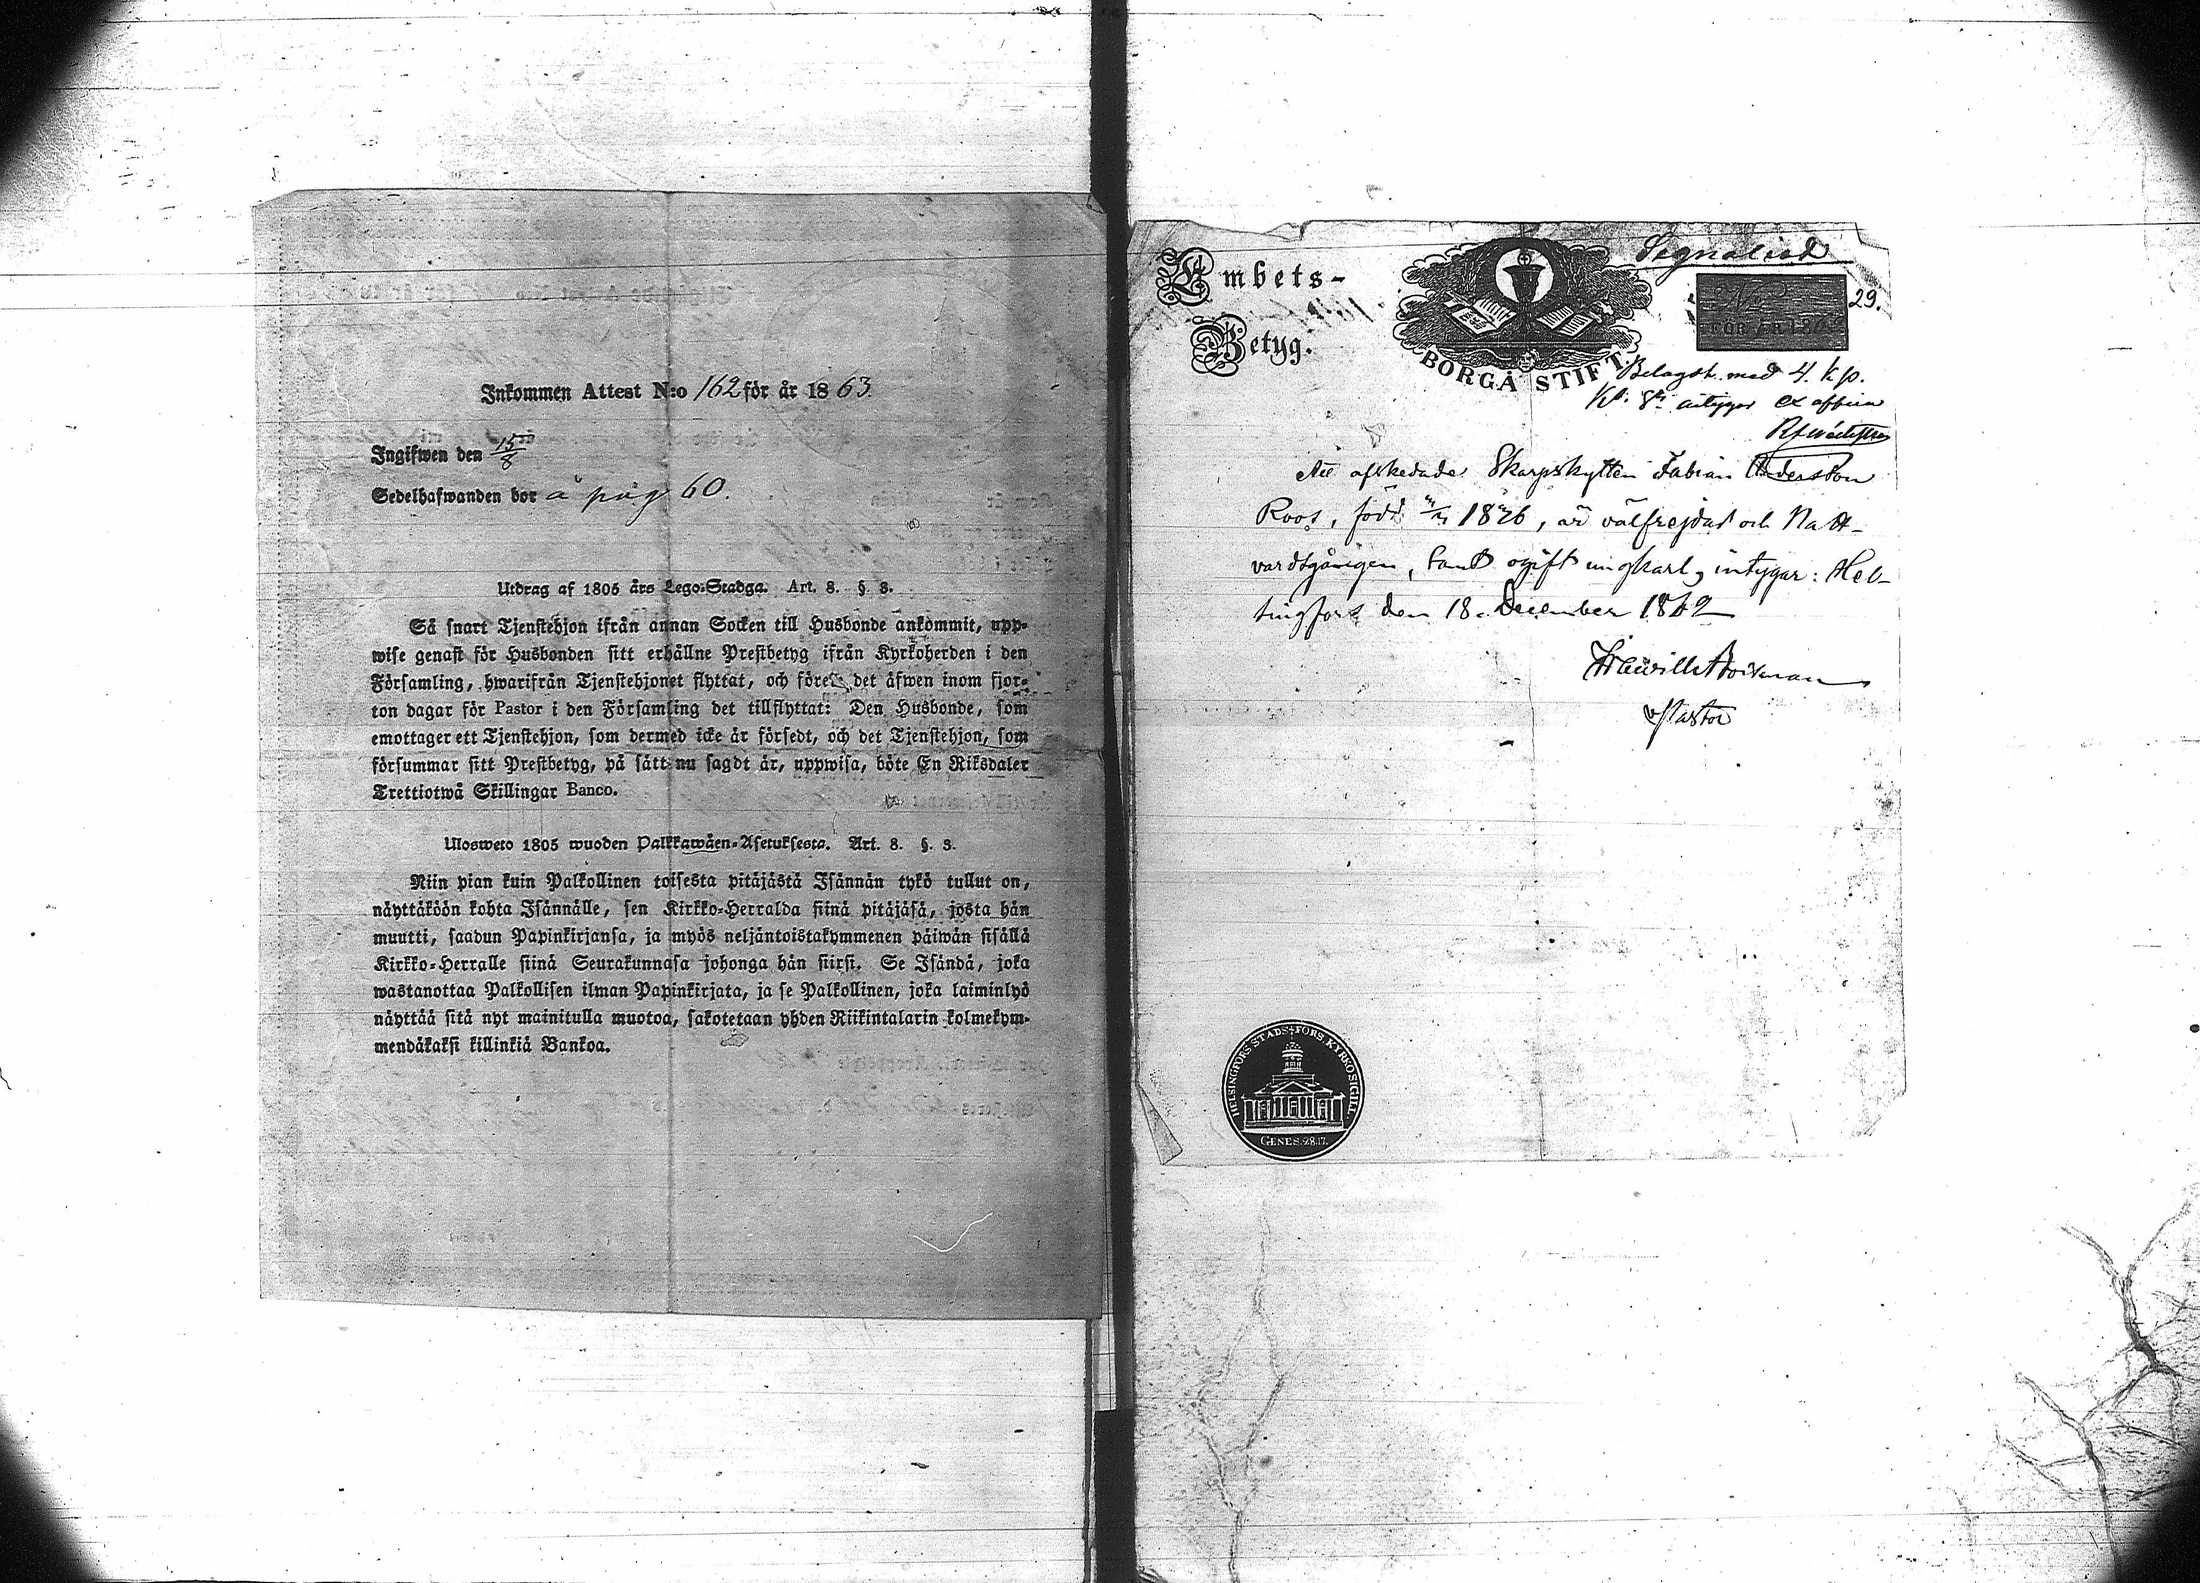 Inkommen Attest N:o 162 för år 1863.
Ingifwen den 15/8
Sedelhafwanden bor å pag 60.
Utdrag af 1805 års Lego-Stadga. Art. 8. §. 3.
Så snart Tjenstehjon ifrån annan Socken till Husbonde ankommit, upp-
wise genast för Husbonden sitt erhållne Prestbetyg ifrån Kyrkoherden i den
Församling, hwarifrån Tjenstehjonet flyttat, och förete det äfwen inom fjor-
ton dagar för Pastor i den Församling det tillflyttat: Den Husbonde, som
emottager ett Tjenstehjon, som dermed icke är försedt, och det Tjenstehjon, som
försummar sitt Prestbetyg, på sätt nu sagdt är, uppwisa, böte En Riksdaler
Trettiotwå Skillingar Banco.
Ulosweto 1805 wuoden Palkkawäen-Asetuksesta. Art. 8. §. 3.
Niin pian kuin Palkollinen toisesta pitäjästä Isännän tykö tullut on,
näyttäköön kohta Isännälle, sen Kirkko-Herralda siinä pitäjäsä, josta hän
muutti, saadun Papinkirjansa, ja myös neljäntoistakymmenen päiwän sisällä
Kirkko-Herralle siinä Seurakunnasa johonga hän siirsi. Se Isändä, joka
wastanottaa Palkollisen ilman Papinkirjata, ja se Palkollinen, joka laiminlyö
näyttää sitä nyt mainitulla muotoa, sakotetaan yhden Riikintalarin kolmekym-
mendäkaksi killinkiä Bankoa.
Embets-
Betyg.
BORGÅ STIFT.
N:o 29.
FÖR ÅR 186
Belagdt med 4. kp.
intygar ex officio
Att afskedade Skarpskytten Fabian Andersson
Roos, född 1826, är välfrejdad och Natt-
vardsgången, samt ogift ungkarl, intygar: Hel-
singfors den 18 December 1862
Boxman
v Pastor
HELSINGFORS STADS FÖRS. KYRKOSIGILL.
GENES. 28.17.